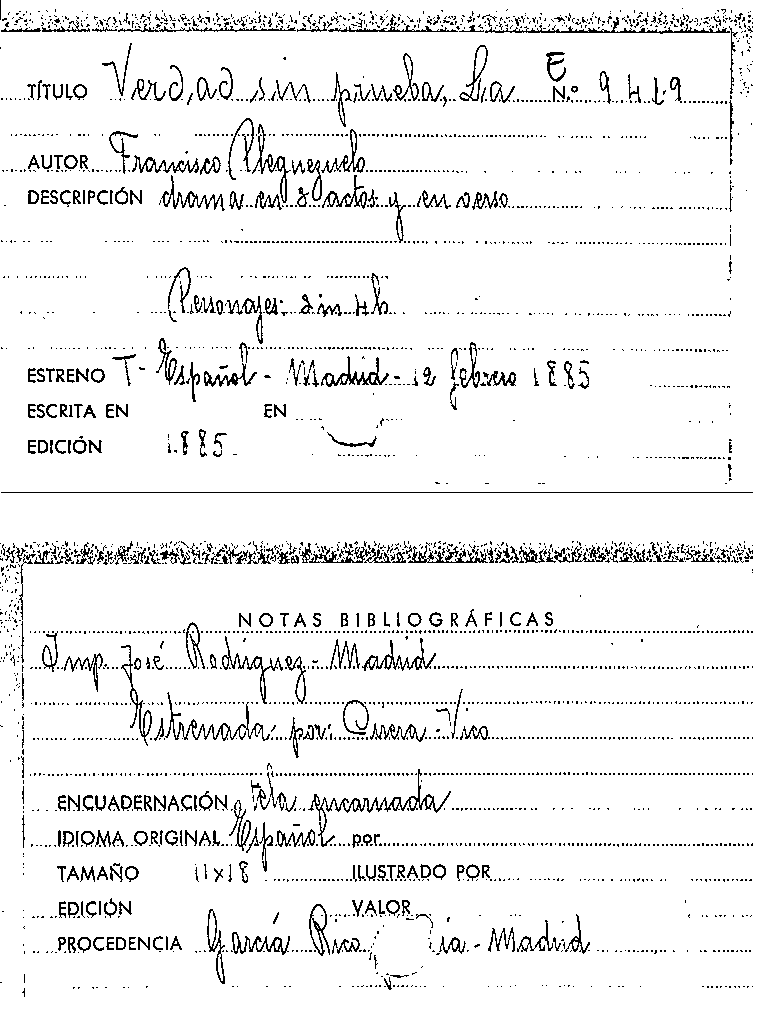 TÍTULO Verdad sin prueba, La E N.º 9419
AUTOR Francisco Pleguezuelo
DESCRIPCIÓN drama en 3 actos y en verso
Personajes: 2m 4h
ESTRENO T- Español - Madrid - 12 febrero 1885
ESCRITA EN EN
EDICIÓN 1885
NOTAS BIBLIOGRÁFICAS
Imp. José Rodríguez - Madrid
Estrenada por: -Vico
ENCUADERNACIÓN tela encarnada
IDIOMA ORIGINAL Español por
TAMAÑO 11x18 ILUSTRADO POR
EDICIÓN VALOR
PROCEDENCIA García Rico - Madrid